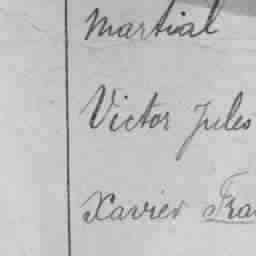 Martial
Victor Jules
Xavier